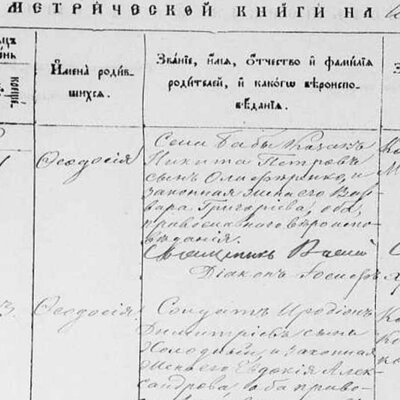 МЕТРИЧЕСКОЙ КНИГИ НА
Имена родив-
шихся.
Званіе, имя, отчество и фамилія
родителей, и какого вѣроиспо-
вѣданія.
Ѳеодосія
Села Бабы Казакъ
Никита Петровъ
сынъ Олиференко, и
законная жена его Вар-
вара Григоріева, оба
православнаго вѣроиспо-
вѣданія.
Священникъ Василій
Діаконъ Іосифъ
Ѳеодосія
Солдатъ Иродіонъ
Димитріевъ сынъ
Холодный, и законная
жена его Евдокія Алек-
сандрова, оба право-